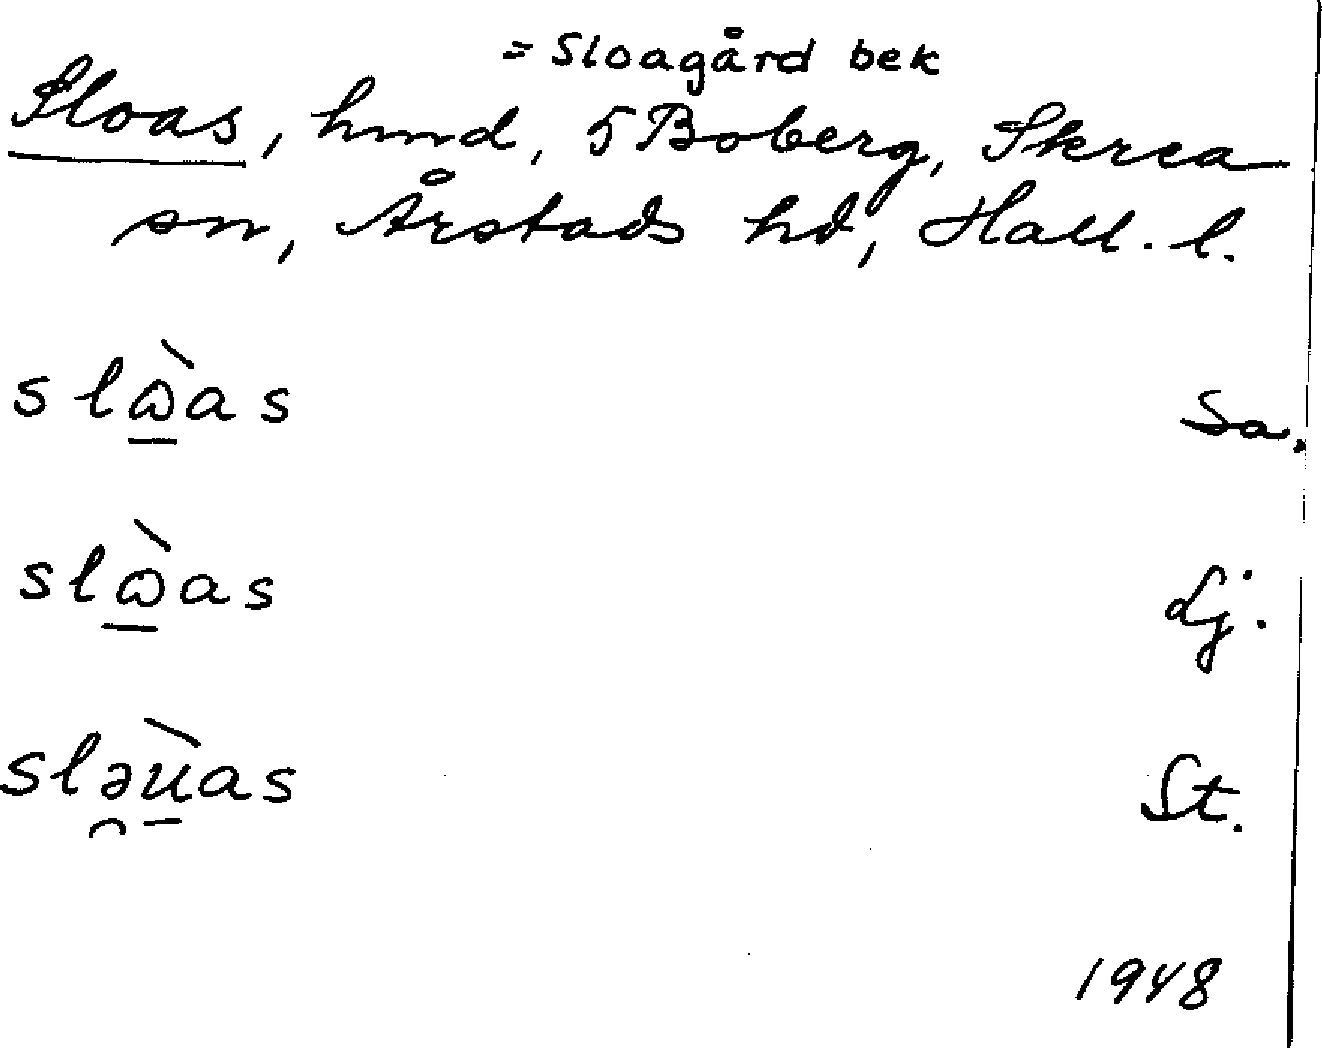 = Sloagård bek
Sloas, hmd, 5 Boberg, Skrea
sn, Årstads hd, Hall. l.
slɷ̠̀as Sa.
slɷ̠̀as Lj.
slə̯ù̠as St.
1948